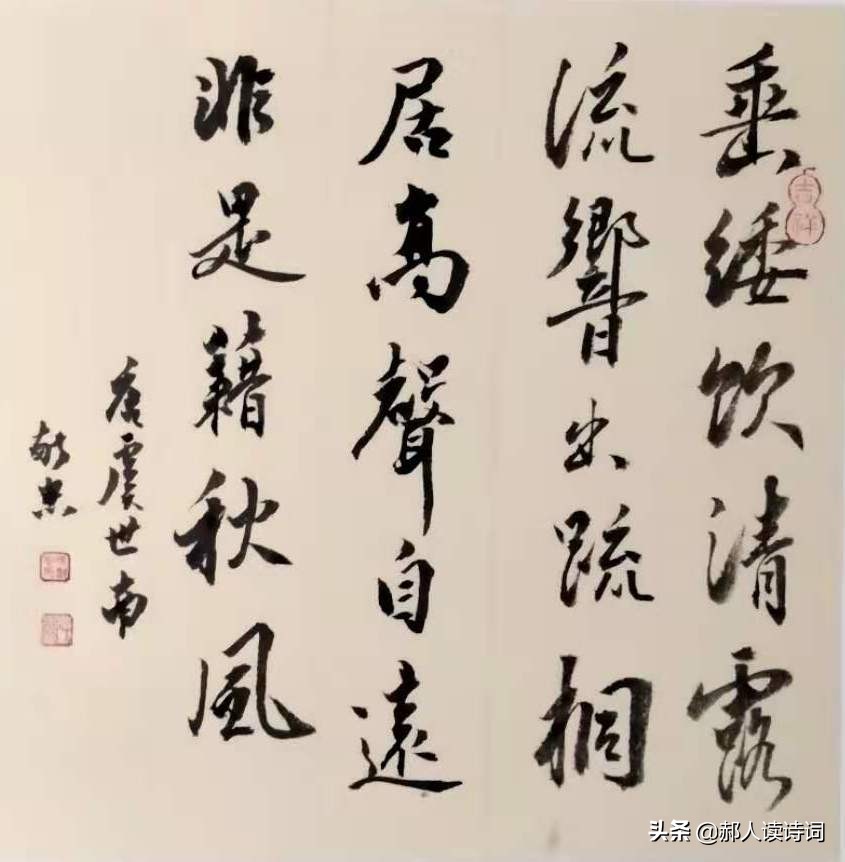 垂緌饮清露
流響出疏桐
居高聲自遠
非是藉秋風
唐虞世南
敬忠
吉祥
头条 @郝人读诗词